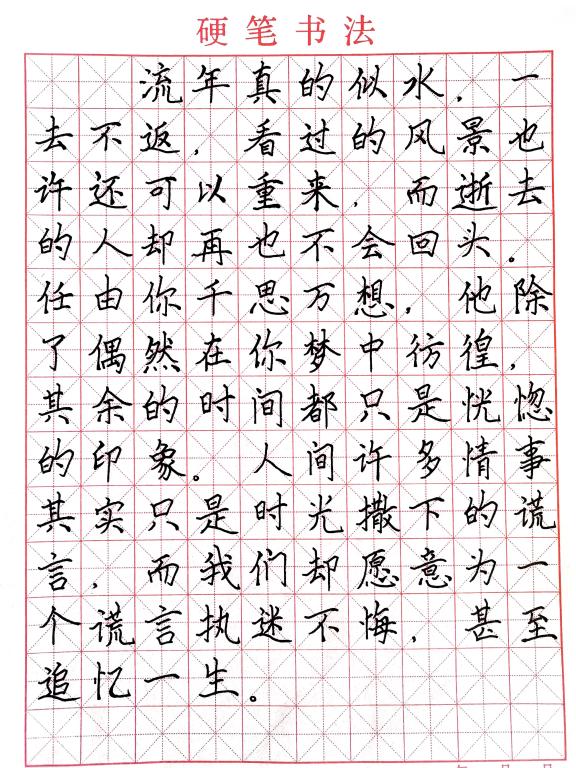 硬笔书法
流年真的似水，一
去不返，看过的风景也
许还可以重来，而逝去
的人却再也不会回头。
任由你千思万想，他除
了偶然在你梦中彷徨，
其余的时间都只是恍惚
的印象。人间许多情事
其实只是时光撒下的谎
言，而我们却愿意为一
个谎言执迷不悔，甚至
追忆一生。